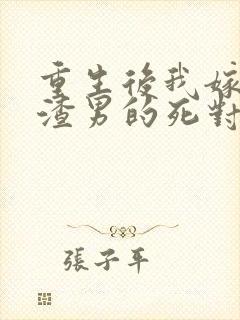 重生後我嫁
渣男的死對
張子平